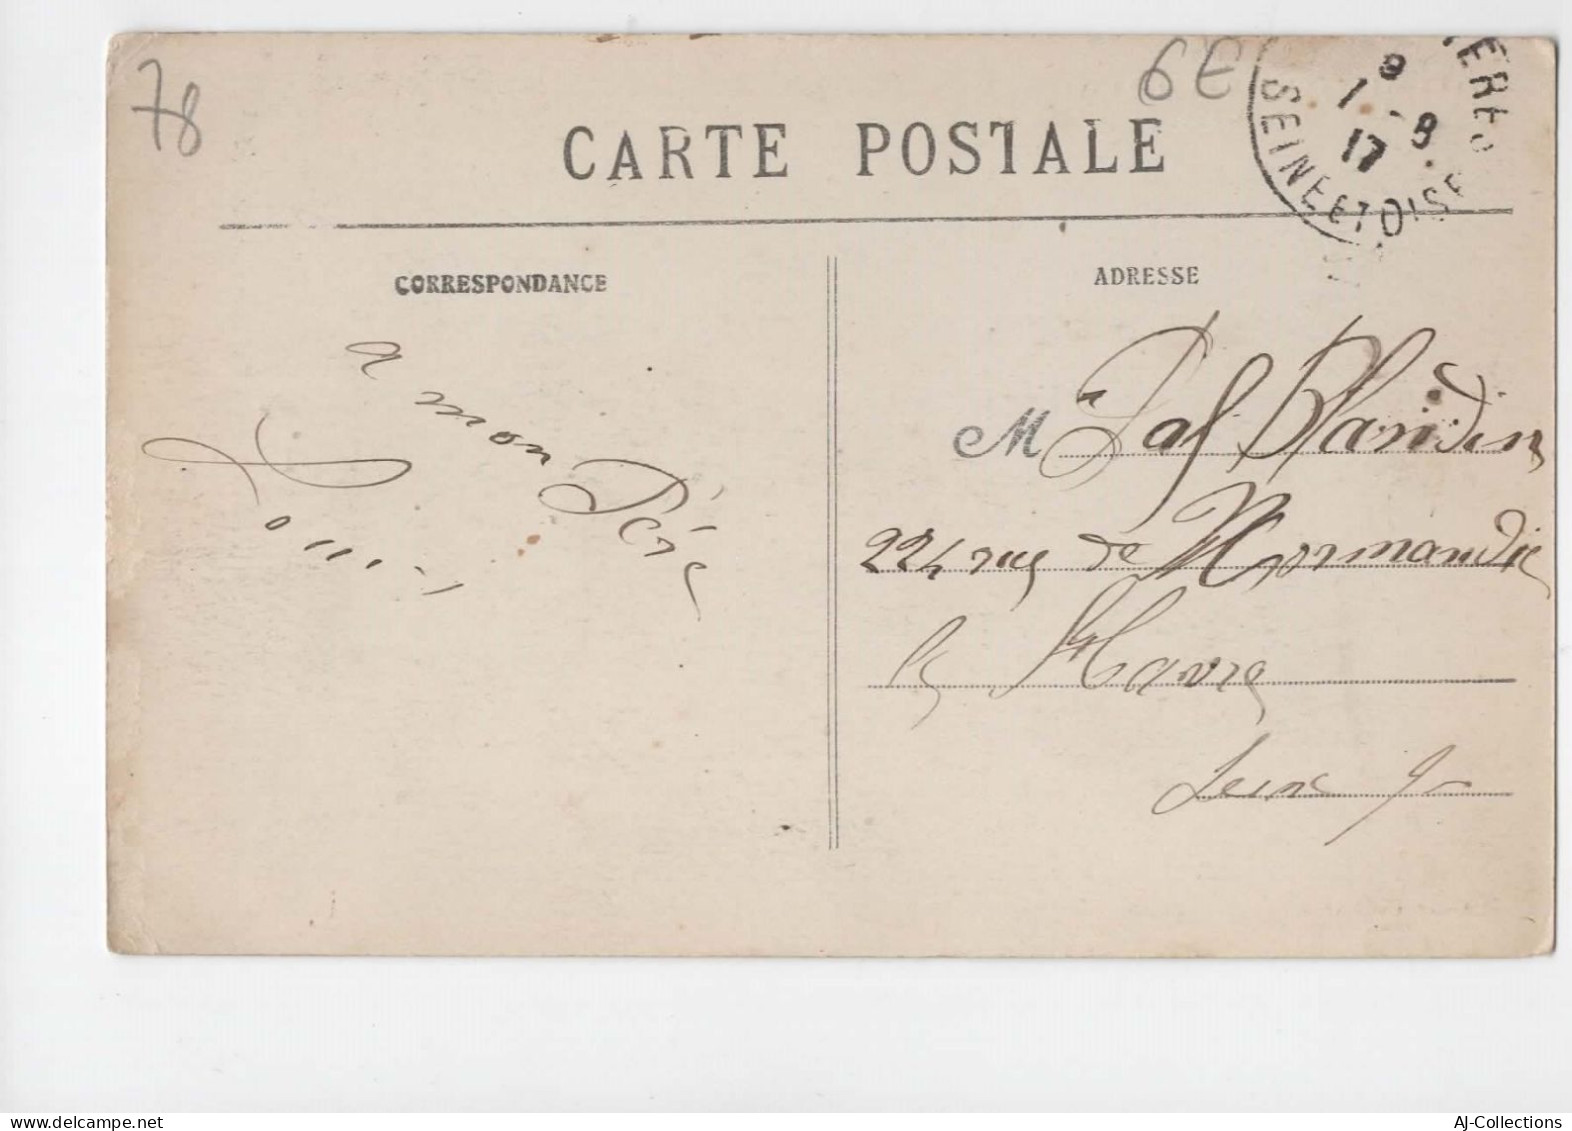 78
6E
CARTE POSTALE
ERES
SEINE ET OISE
9
1 - 8
17
CORRESPONDANCE
a mon Père
Louis
ADRESSE
M Blandin
224 rue de Normandie
le Havre
Seine
AJ-Collections